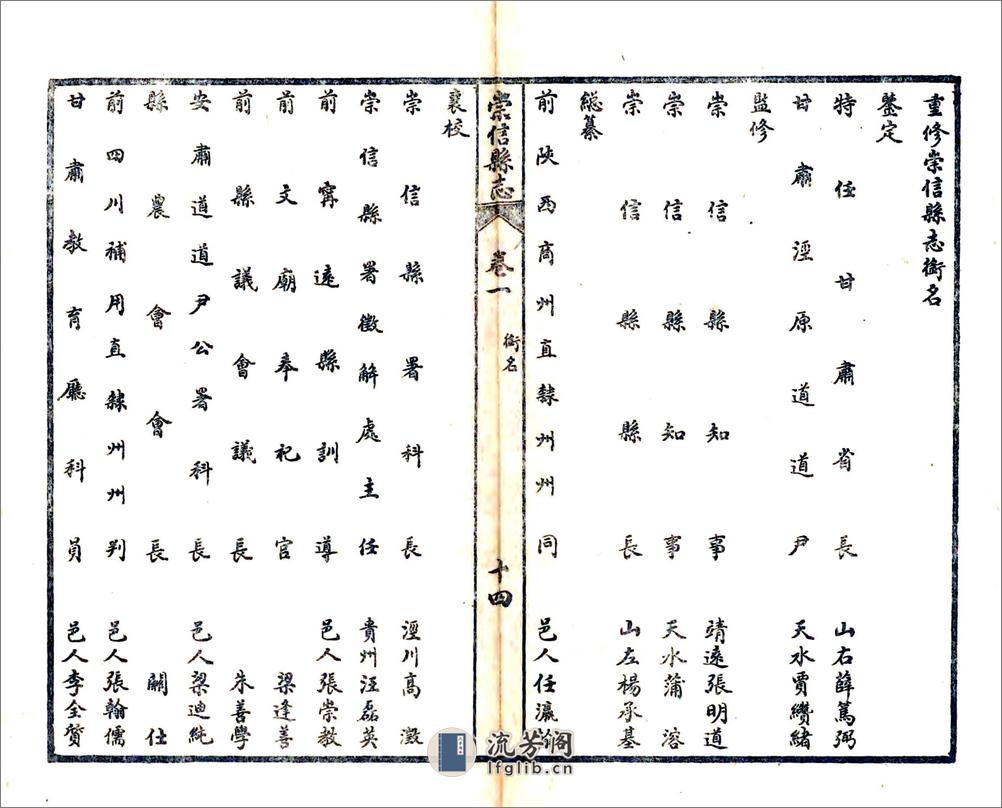 重修崇信縣志銜名
鑒定
特任甘肅省長 山右薛篤弼
甘肅涇原道道尹 天水賈纘緒
監修
崇信縣知事 靖遠張明道
崇信縣知事 天水蒲溶
崇信縣縣長 山左楊承基
總纂
前陝西商州直隸州州同 邑人任瀛
崇信縣志
卷一
銜名
十四
襄校
崇信縣署科長 涇川高澂
崇信縣署徵解處主任 貴州汪磊英
前甯遠縣訓導 邑人張崇教
前文廟奉祀官 梁逢善
前縣議會議長 朱善學
安肅道道尹公署科長 邑人梁迪純
縣農會會長 關仕
前四川補用直隸州州判 邑人張翰儒
甘肅教育廳科員 邑人李全賢
流芳阁
lfglib.cn